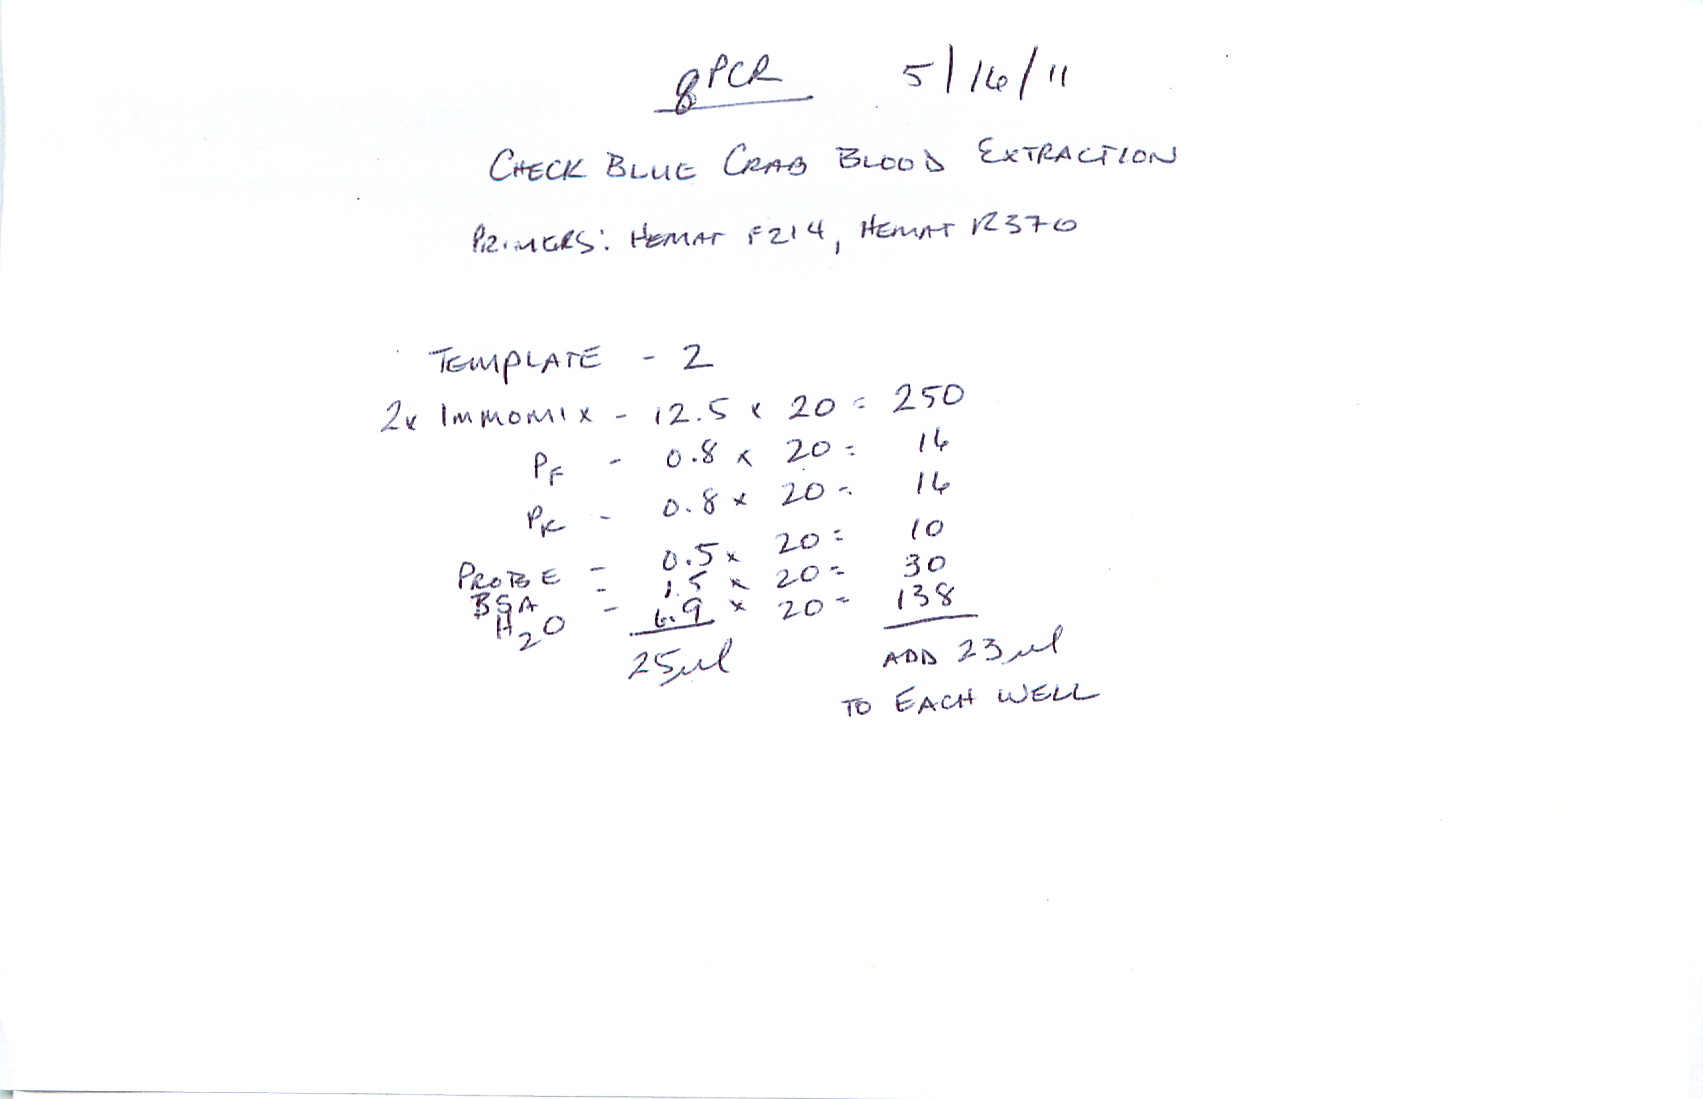 qPCR 5/16/11
CHECK BLUE CRAB BLOOD EXTRACTION
PRIMERS: HEMAT F214, HEMAT R370
TEMPLATE - 2
2x IMMOMIX - 12.5 x 20 = 250
PF - 0.8 x 20 = 16
PR - 0.8 x 20 = 16
PROBE - 0.5 x 20 = 10
BSA - 1.5 x 20 = 30
H2O - 6.9 x 20 = 138
25µl ADD 23µl
TO EACH WELL